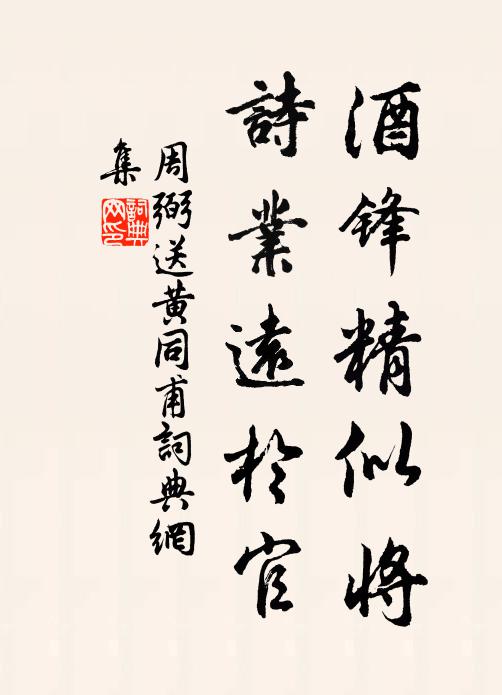 酒鋒精似將
詩業遠於官
周弼送黃同甫詞典網
集
詞典網印